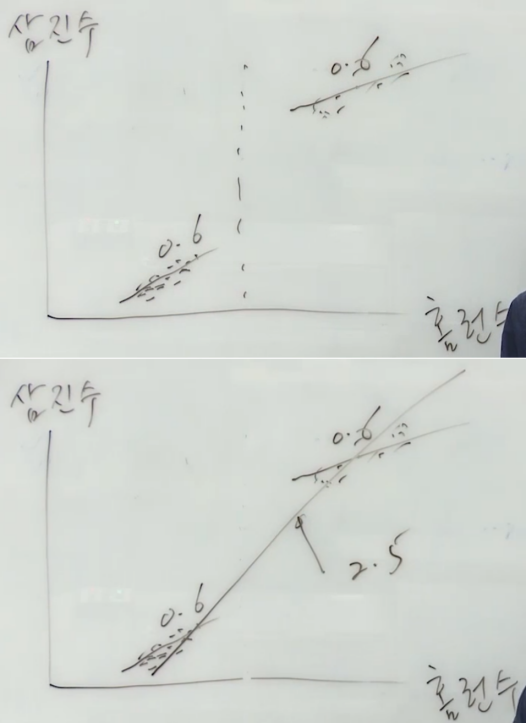 삼진수
0.6
0.6
홈런수
삼진수
0.6
2.5
0.6
홈런수